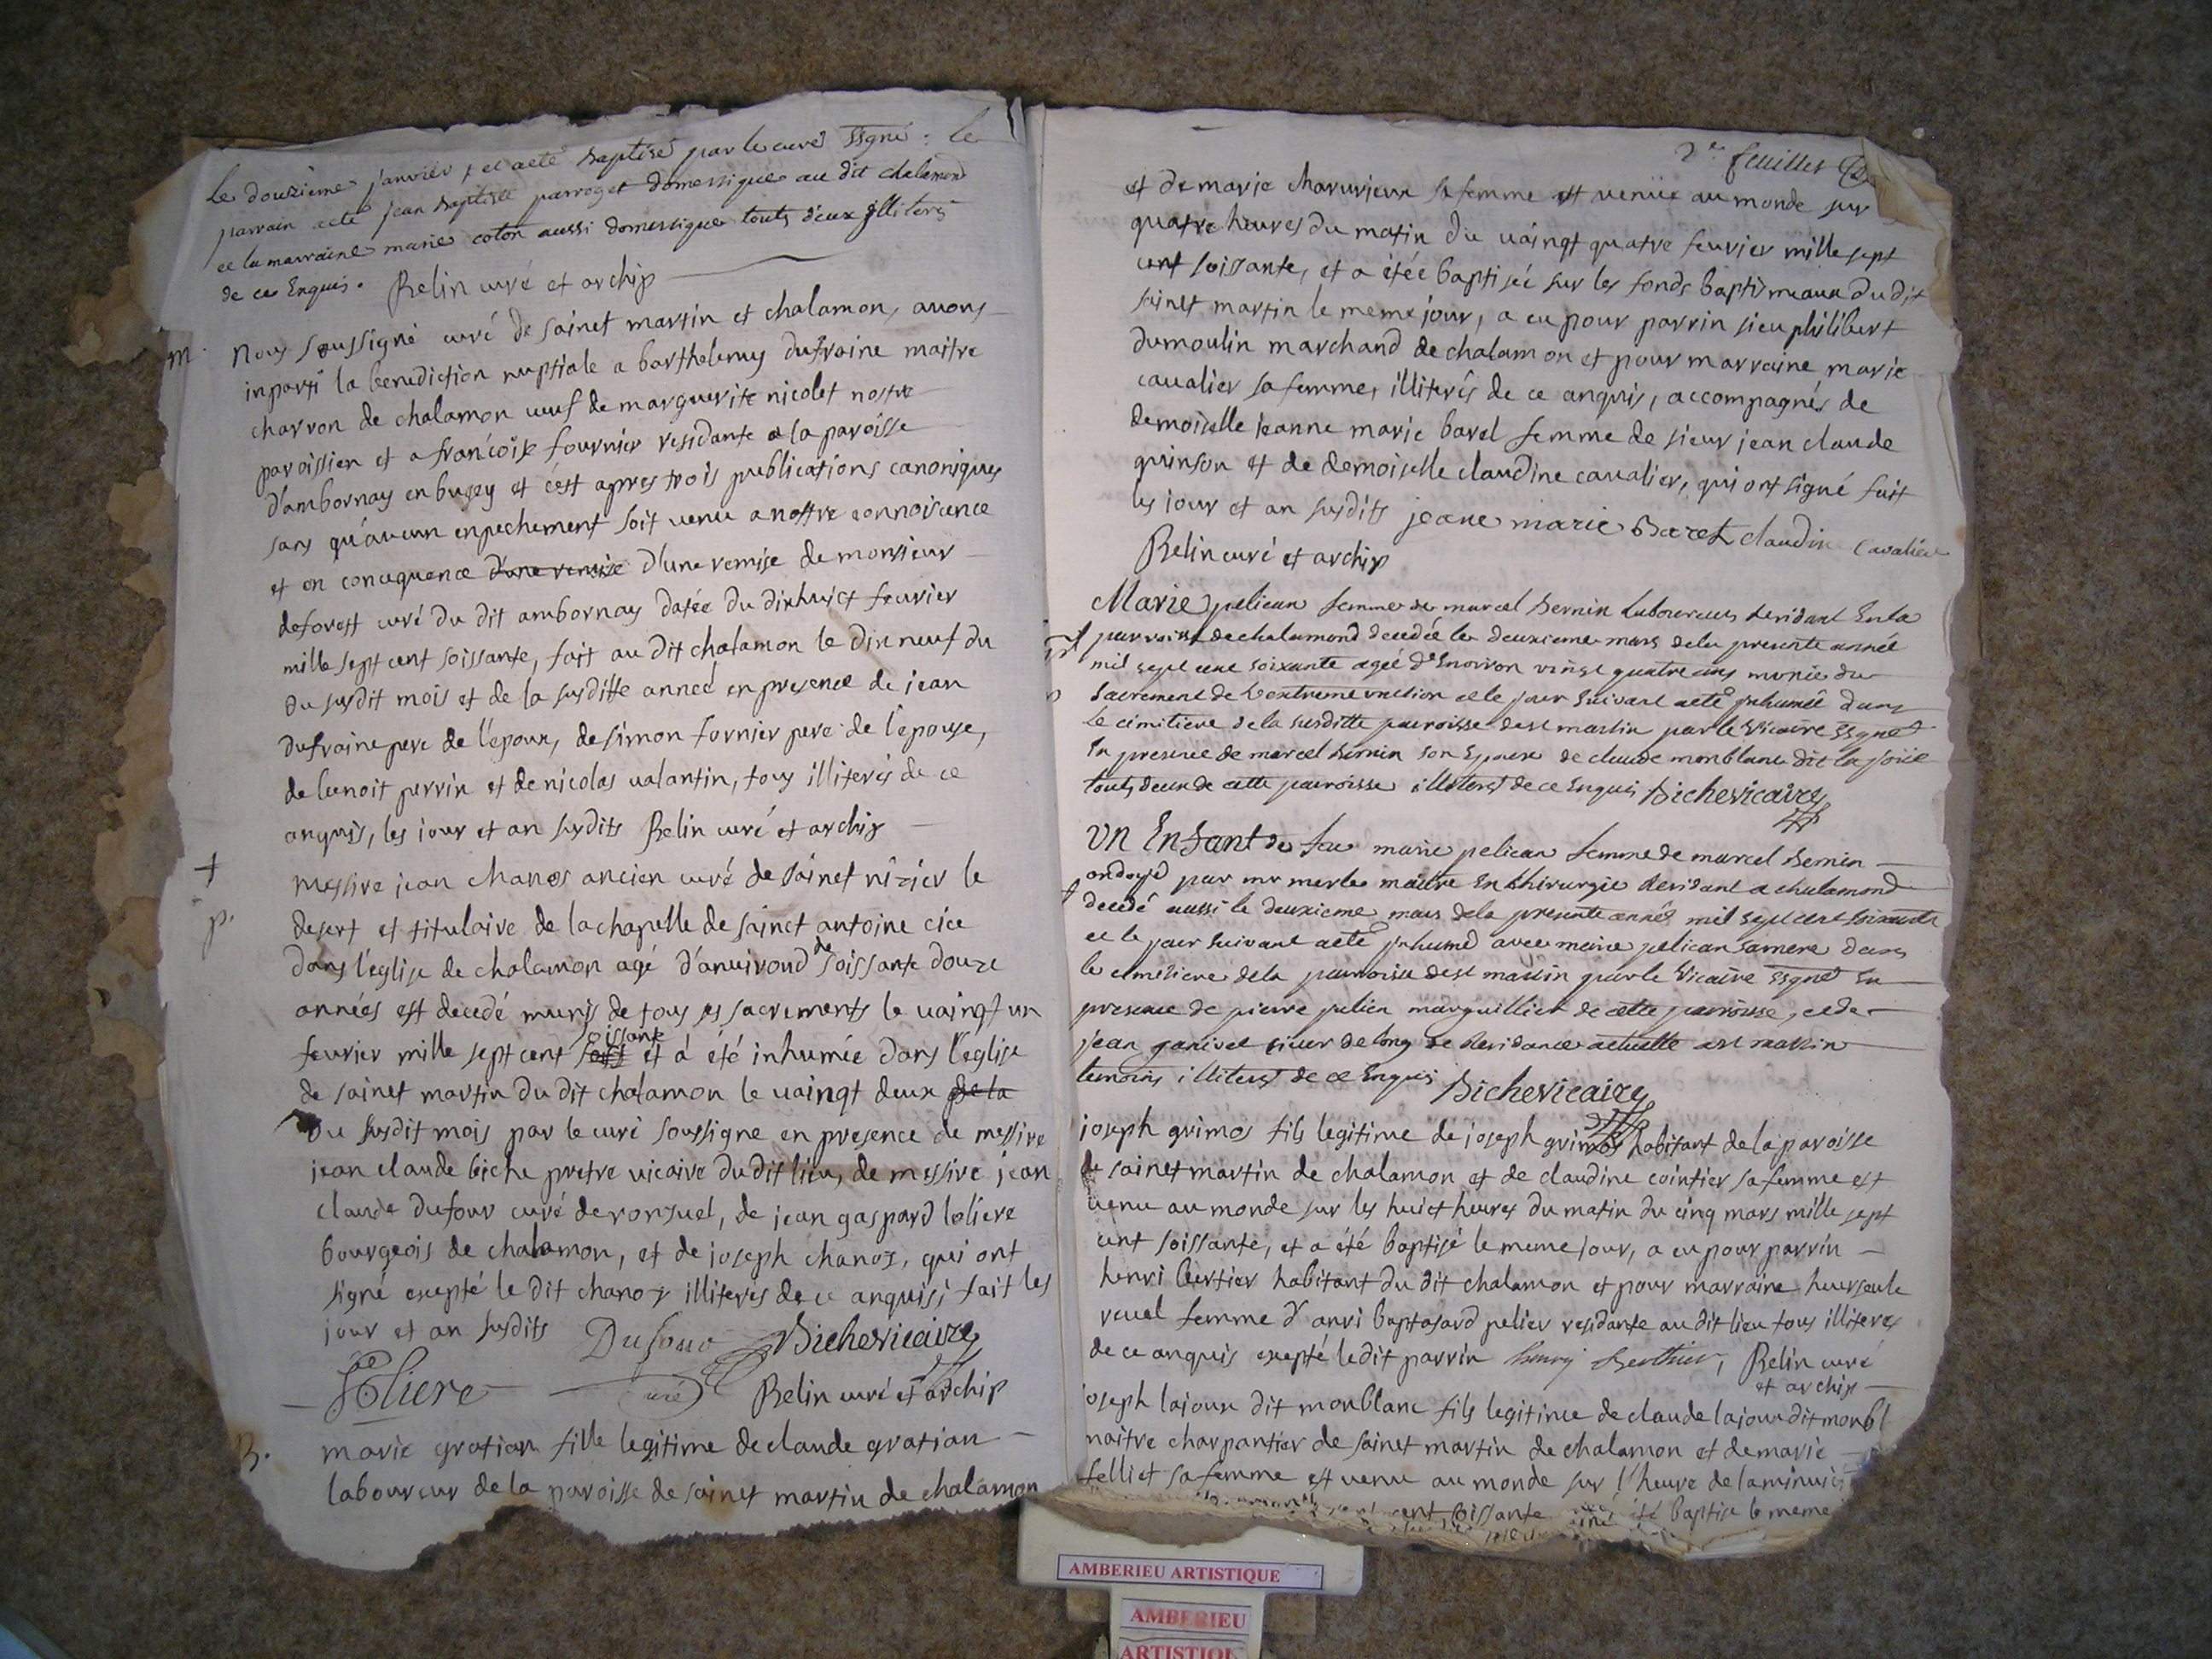 Le douzieme janvier, et a eté baptisé par le curé ssgné : le
parrain a eté jean baptiste parroget domestique au dit chalamond
et la marraine marie coton aussi domestique touts deux illiterés
de ce Enquis. Belin curé et archip
m. Nous soussigné curé de sainct martin et chalamon, avons
inparti la benediction nuptiale a barthelemy dufraine maitre
charron de chalamon veuf de marguerite nicolet nostre
paroissien et a francoise fournier residante a la paroisse
d'ambornay en bugey et c'est apres trois publications canoniques
sans qu'aucun enpechement soit venu a nostre connoisence
et en concequence d'une remise d'une remise de monsieur
deforest curé du dit ambornay datée du dixhuict feurier
mille sept cent soissante, fait au dit chalamon le dix neuf du
du susdit mois et de la susditte année en presence de jean
dufraine pere de l'epoux, de simon fornier pere de l'epouse,
de benoit perrin et de nicolas valantin, tous illiterés de ce
anquis, les jour et an susdits Belin curé et archip
† messire jean chanos ancien curé de sainct nizier le
p. desert et titulaire de la chapelle de sainct antoine cice
dans l'eglise de chalamon agé d'anuirond de soissante douze
années est decedé munis de tous ses sacrements le uaingt un
feurier mille sept cent soissante et a été inhumée dans l'eglise
de sainct martin du dit chalamon le uaingt deux de la
du susdit mois par le curé soussigne en presence de messire
jean claude biche pretre uicaire du dit lieu, de messire jean
claude dufour curé de ronzuel, de jean gaspard loliere
bourgeois de chalamon, et de joseph chanoz, qui ont
signé exepté le dit chanoz illiterés de ce anquis; fait les
jour et an susdits Dufour Biche vicaire
Loliere curé Belin curé et archip
B. marie gratian fille legitime de claude gratian
laboureur de la paroisse de sainct martin de chalamon
2e feuillet
et de marie charurieux sa femme est venüe au monde sur
quatre heures du matin du uaingt quatre feurier mille sept
cent soissante, et a étée baptisée sur les fonds baptismeaux du dit
sainct martin le meme jour, a eu pour parrin sieu philibert
dumoulin marchand de chalamon et pour marraine marie
caualier sa femme, illiterés de ce anquis, accompagnés de
demoiselle jeanne marie barel femme de sieur jean claude
quinson et de demoiselle claudine caualier, qui ont signé fait
les jour et an susdits jeane marie Baret claudine Cavalier
Belin curé et archip
Marie pelican femme de marcel bernin laboureur residant En la
† parroisse de chalamond decedée le deuxieme mars de la presente année
mil sept cent soixante agée d'Environ vingt quatre ans munie du
sacrement de l'extreme onction et le jour suivant a eté inhumée dans
le cimitiere de la susditte parroisse de st martin par le Vicaire ssgné
En presence de marcel bernin son Epoux de claude monblanc dit la joüe
touts deux de cette parroisse illiterés de ce Enquis Biche vicaire
Un Enfant de feu marie pelican femme de marcel bernin
ondoyé par mr merle maitre En chirurgie residant a chalamond
† decedé aussi le deuxieme mars de la presente année mil sept cent soixante
et le jour suivant a eté inhumé avec marie pelican sa mere dans
le cimetiere de la parroisse de st martin par le Vicaire ssgné En
presence de pierre pelien marguillier de cette parroisse, et de
jean ganivet sieur de long de residance actuelle a st martin
temoins illiterés de ce Enquis Biche vicaire
joseph grimos fils legitime de joseph grimos habitant de la paroisse
de sainct martin de chalamon et de claudine cointier sa femme est
uenu au monde sur les huict heures du matin du cinq mars mille sept
cent soissante, et a été baptisé le meme jour, a eu pour parrin
henri bertier habitant du dit chalamon et pour marraine hurseule
reuel femme d'anri baptasard pelier residante au dit lieu tous illiteres
de ce anquis exepté le dit parrin henry berthier, Belin curé
et archip
joseph lajoux dit monblanc fils legitime de claude lajoux dit monbl
maitre charpantier de sainct martin de chalamon et de marie
felliet sa femme est uenu au monde sur l'heure de la minuic
cent soissante été baptise le meme
AMBERIEU ARTISTIQUE
AMBERIEU
ARTISTIQUE